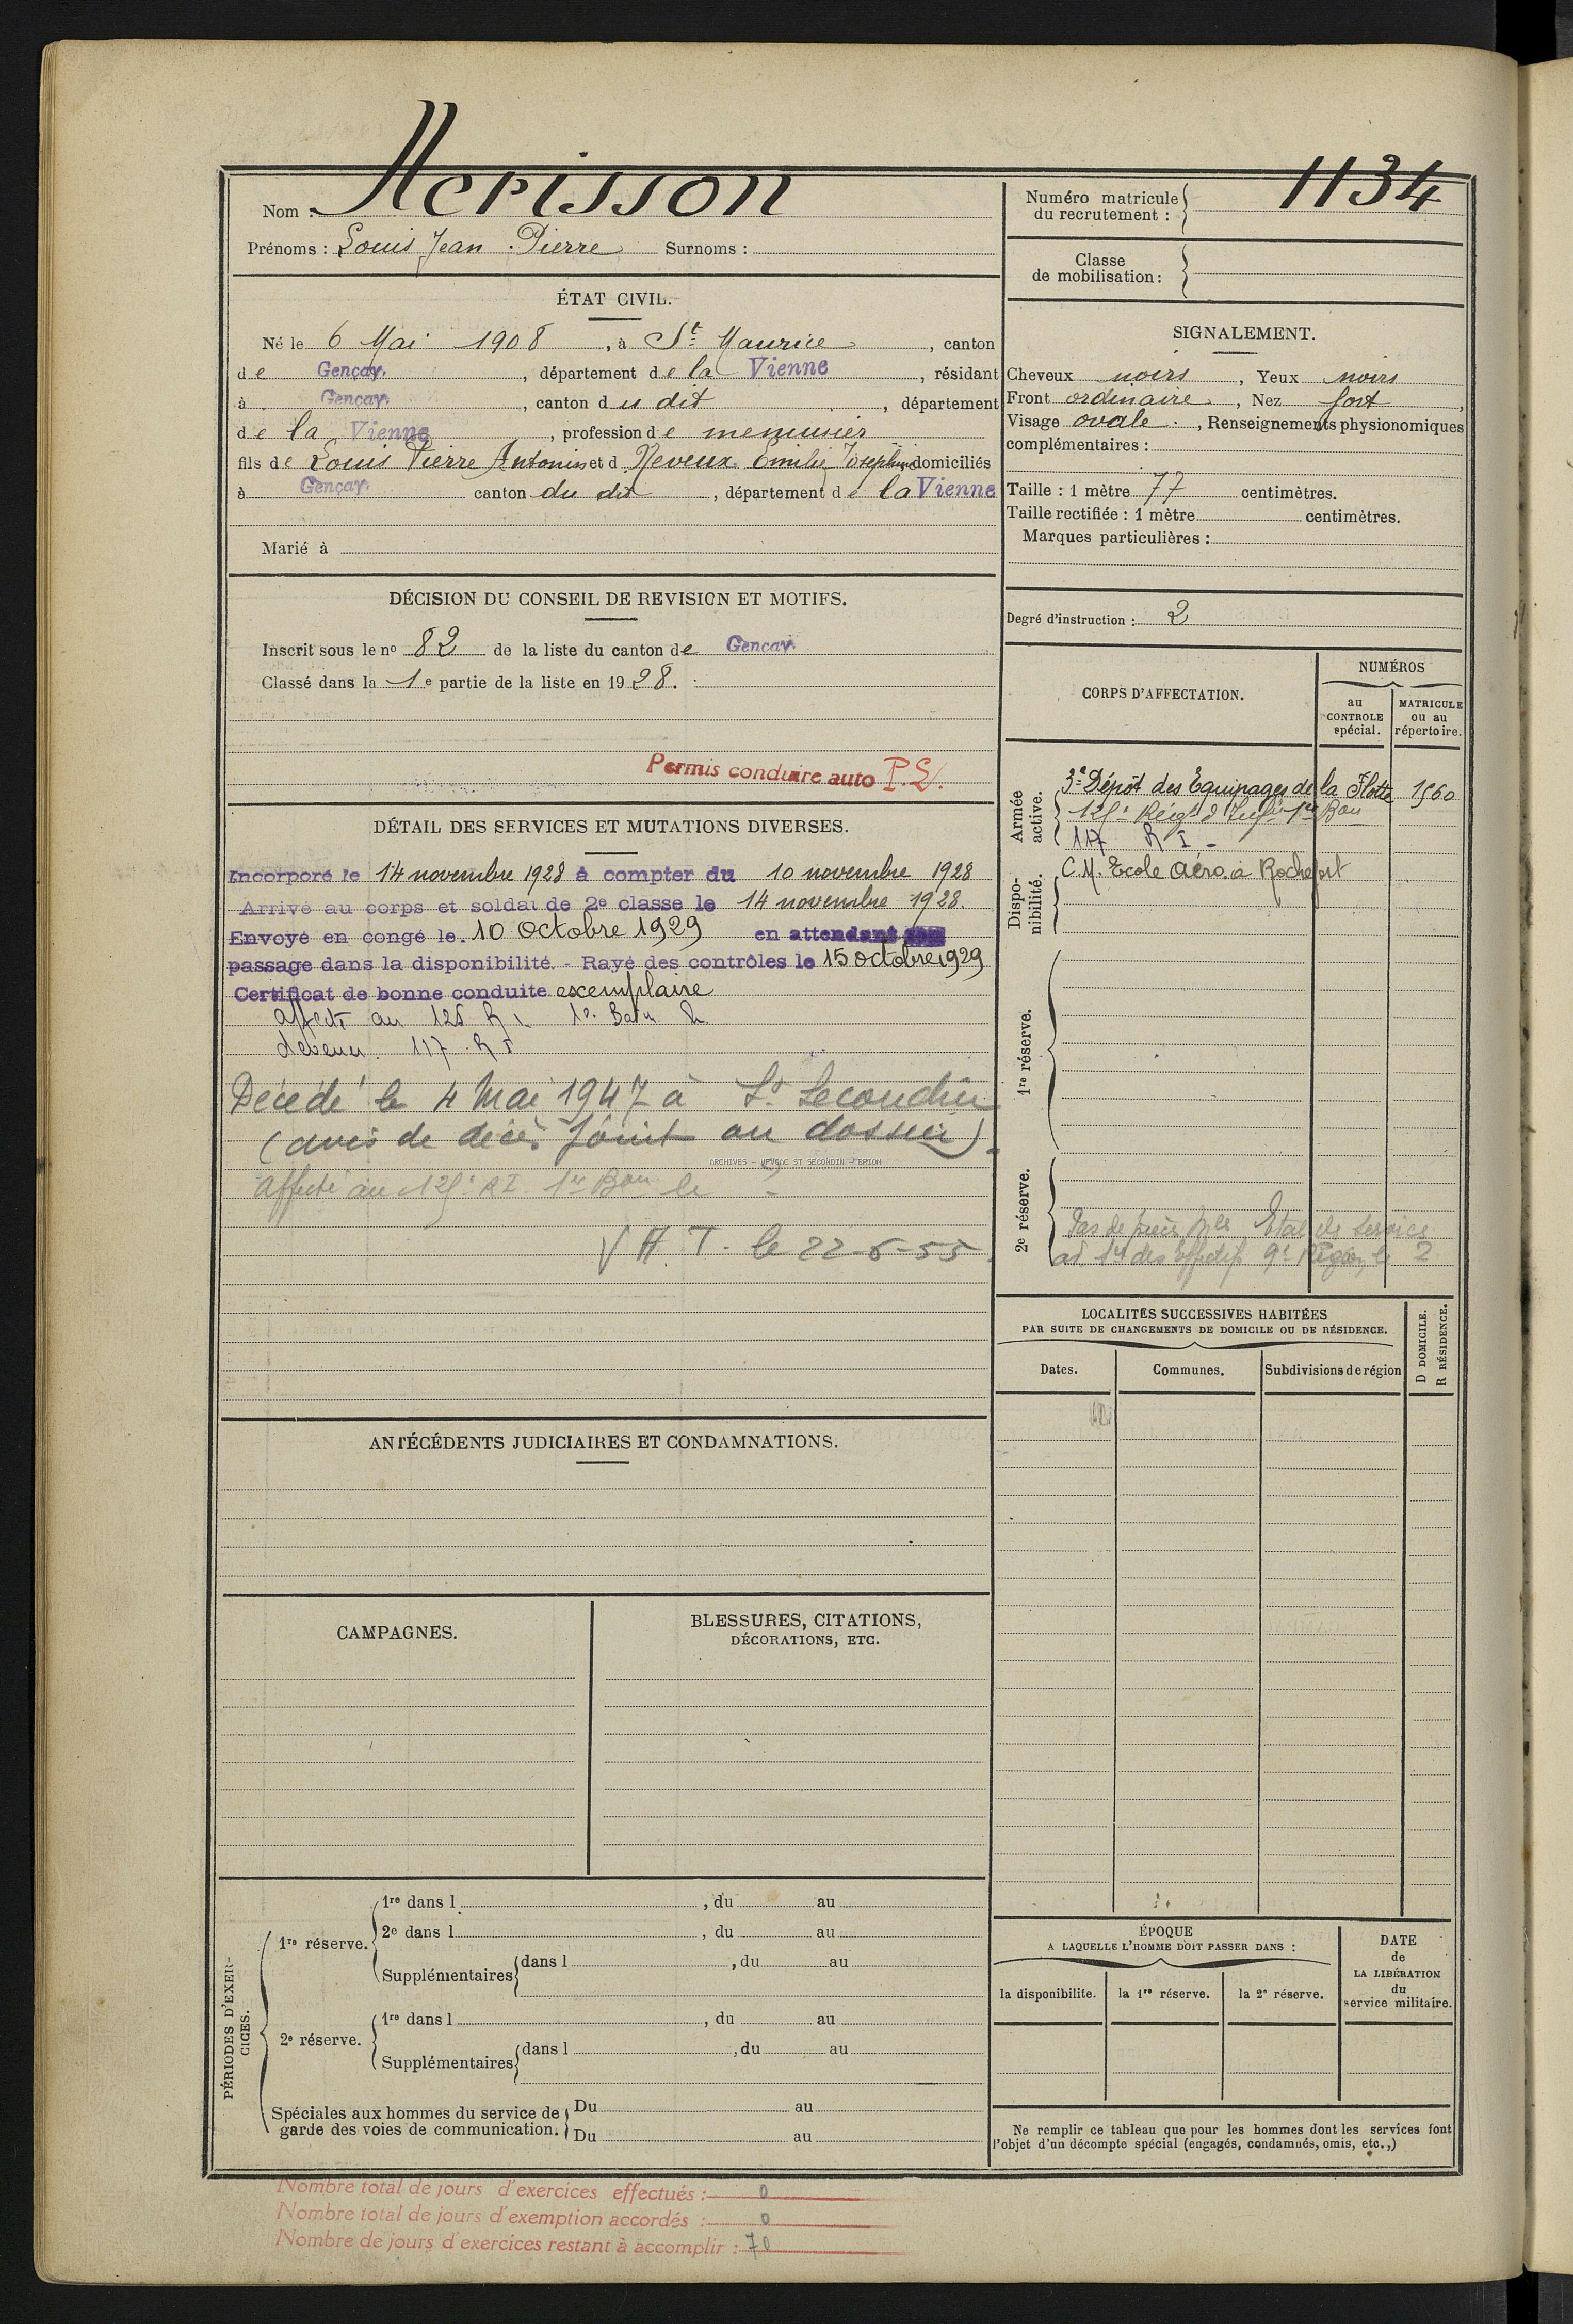 Nom : Herisson
Prénoms : Louis Jean Pierre Surnoms :
Numéro matricule du recrutement : 1134
Classe de mobilisation :
ÉTAT CIVIL.
Né le 6 Mai 1908, à St Maurice, canton
de Gençay, département de la Vienne, résidant
à Gençay, canton du dit, département
de la Vienne, profession de menuisier
fils de Louis Pierre Antonin et d Neveux Emilie Josephine domiciliés
à Gençay canton du dit, département de la Vienne
Marié à
SIGNALEMENT.
Cheveux noirs, Yeux noirs
Front ordinaire, Nez fort,
Visage ovale., Renseignements physionomiques
complémentaires :
Taille : 1 mètre 77 centimètres.
Taille rectifiée : 1 mètre centimètres.
Marques particulières :
Degré d'instruction : 2
DÉCISION DU CONSEIL DE REVISION ET MOTIFS.
Inscrit sous le no 82 de la liste du canton de Gençay
Classé dans la 1e partie de la liste en 1928.
Permis conduire auto P.L.
DÉTAIL DES SERVICES ET MUTATIONS DIVERSES.
Incorporé le 14 novembre 1928 à compter du 10 novembre 1928
Arrivé au corps et soldat de 2e classe le 14 novembre 1928.
Envoyé en congé le 10 Octobre 1929 en attendant son
passage dans la disponibilité. - Rayé des contrôles le 15 octobre 1929
Certificat de bonne conduite exemplaire
affecté au 125 R I 1e Baton
devenu 117 R I
Décédé le 4 Mai 1947 à St Secondin
(avis de décès joint au dossier).
ARCHIVES - ST SECONDIN - BRION
Affecté au 125e RI 1er Bon le
V H. T. le 22-6-55
CORPS D'AFFECTATION.
NUMÉROS
au CONTROLE spécial.
MATRICULE ou au répertoire.
Armée active.
3e Dépôt des Equipages de la Flotte 1560
125e Régt d'Infie 1er Bon
117 R I -
Disponibilité.
C.M. Ecole Aéro. à Rochefort
1re réserve.
2e réserve.
Pas de Etat de Service
9e Région, le 2
LOCALITÉS SUCCESSIVES HABITÉES
PAR SUITE DE CHANGEMENTS DE DOMICILE OU DE RÉSIDENCE.
D DOMICILE.
R RÉSIDENCE.
Dates.
Communes.
Subdivisions de région
ANTÉCÉDENTS JUDICIAIRES ET CONDAMNATIONS.
CAMPAGNES.
BLESSURES, CITATIONS,
DÉCORATIONS, ETC.
PÉRIODES D'EXERCICES.
1re réserve.
1re dans l , du au
2e dans l , du au
Supplémentaires dans l , du au
2e réserve.
1re dans l , du au
Supplémentaires dans l , du au
Spéciales aux hommes du service de
garde des voies de communication.
Du au
Du au
ÉPOQUE
A LAQUELLE L'HOMME DOIT PASSER DANS :
la disponibilite.
la 1re réserve.
la 2e réserve.
DATE
de
LA LIBÉRATION
du
service militaire.
Ne remplir ce tableau que pour les hommes dont les services font
l'objet d'un décompte spécial (engagés, condamnés, omis, etc.,)
Nombre total de jours d'exercices effectués : 0
Nombre total de jours d'exemption accordés : 0
Nombre de jours d'exercices restant à accomplir : 70